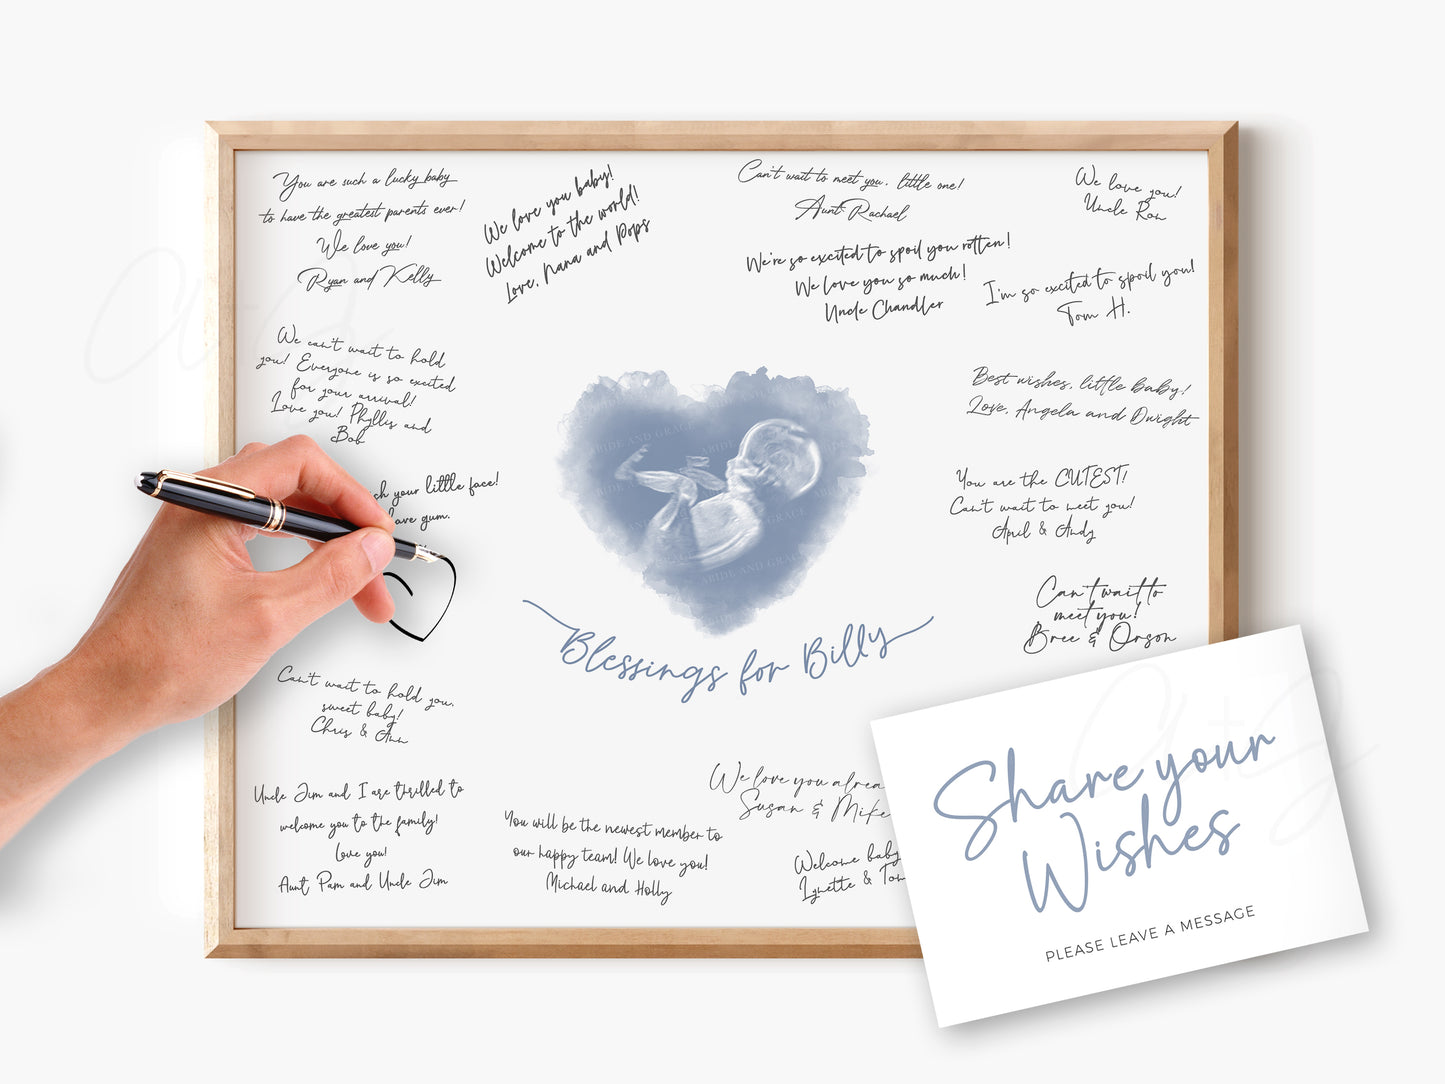 You are such a lucky baby
to have the greatest parents ever!
We love you!
Ryan and Kelly
We love you baby!
Welcome to the world!
Love, Nana and Pops
Can't wait to meet you, little one!
Aunt Rachael
We love you!
Uncle Ron
We're so excited to spoil you rotten!
We love you so much!
Uncle Chandler
I'm so excited to spoil you!
Tom H.
We can't wait to hold
you! Everyone is so excited
for your arrival!
Love you! Phyllis and
Bob
Best wishes, little baby!
Love, Angela and Dwight
your little face!
gum.
You are the CUTEST!
Can't wait to meet you!
April & Andy
ABIDE AND GRACE
ABIDE AND GRACE
ABIDE AND GRACE
Can't wait to
meet you!
Bree & Orson
Blessings for Billy
Can't wait to hold you,
sweet baby!
Chris & Ann
Uncle Jim and I are thrilled to
welcome you to the family!
Love you!
Aunt Pam and Uncle Jim
You will be the newest member to
our happy team! We love you!
Michael and Holly
We love you alrea
Susan & Mike
Welcome baby
Lynette & Tom
Share your
Wishes
PLEASE LEAVE A MESSAGE